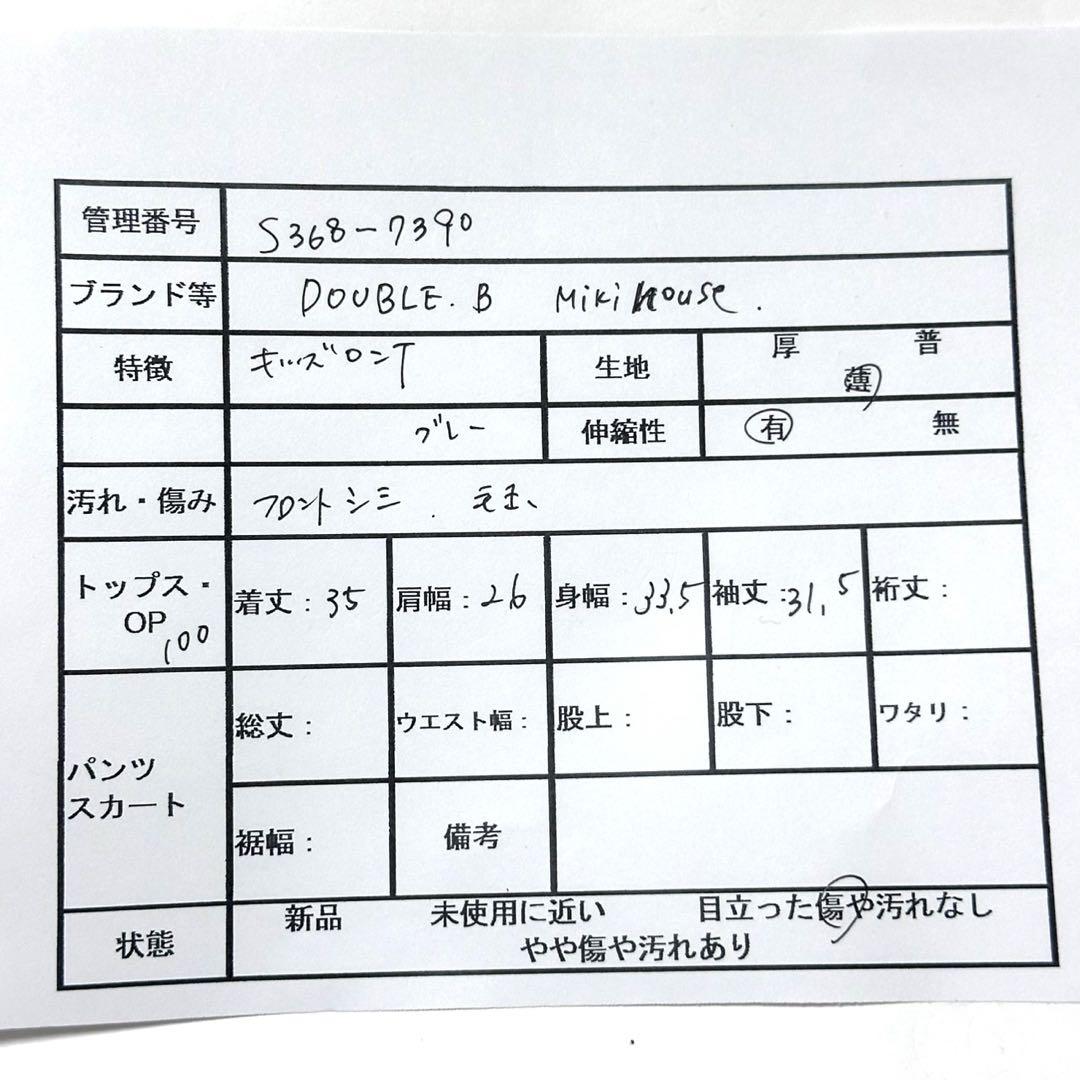 管理番号 S368-7390
ブランド等 DOUBLE.B MiKiHouse.
特徴 キッズロンT 生地 厚 普 薄
グレー 伸縮性 有 無
汚れ・傷み フロントシミ.
トップス・OP 100 着丈：35 肩幅：26 身幅：33,5 袖丈：31,5 裄丈：
パンツ スカート 総丈： ウエスト幅： 股上： 股下： ワタリ：
裾幅： 備考
状態 新品 未使用に近い 目立った傷や汚れなし
やや傷や汚れあり